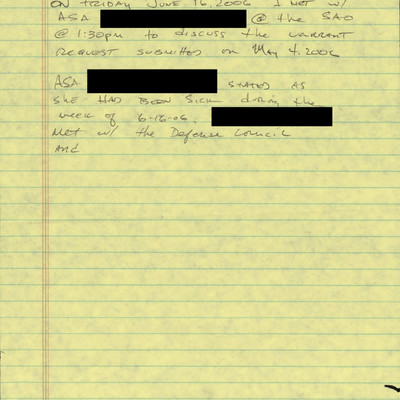 ON FRIDAY JUNE 16, 2006 I MET w/
ASA @ the SAO
@ 1:30pm to discuss the warrant
REQUEST SUBMITTED on MAY 4, 2006
ASA STATED AS
SHE HAD BEEN SICK during the
week of 6-16-06.
MET w/ the Defense Council
And